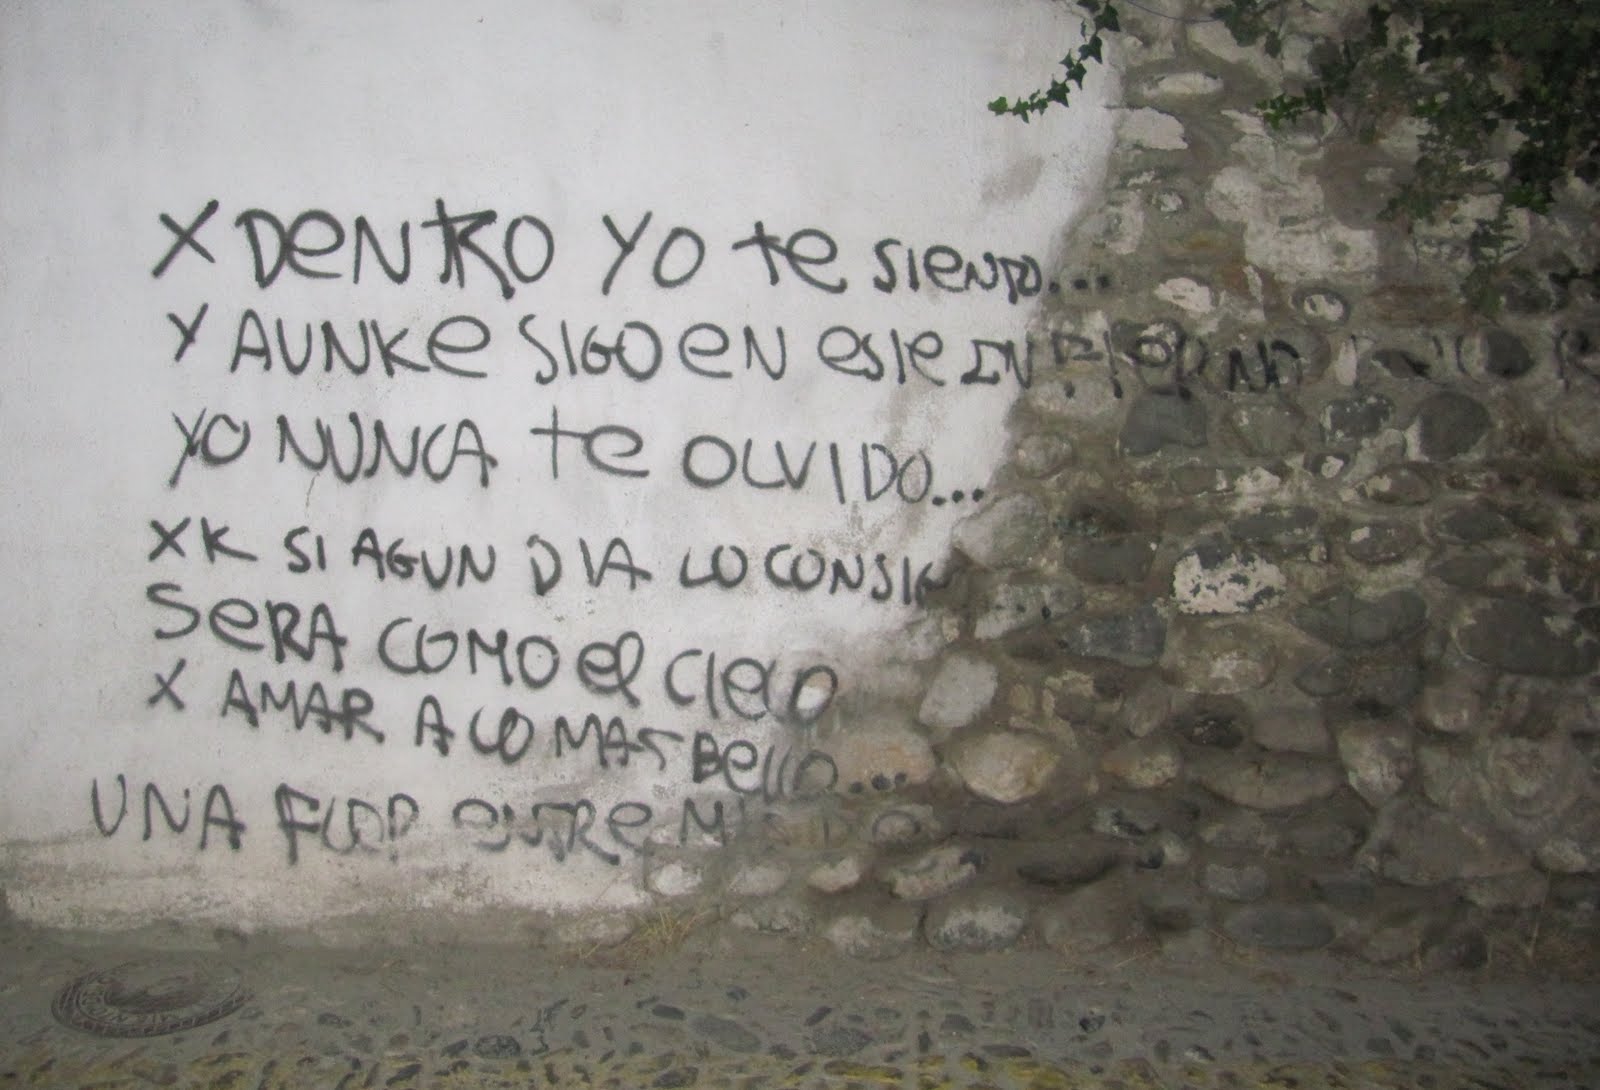 X DENTRO YO te SIENTO...
Y AUNKe SIGO eN eSte INFIeRNO
YO NUNCA te OLVIDO...
XK SI AGUN DIA LO CONSIG
SeRA COMO el CIelO
X AMAR A LO MAS Bello...
UNA FLOR eNTRe